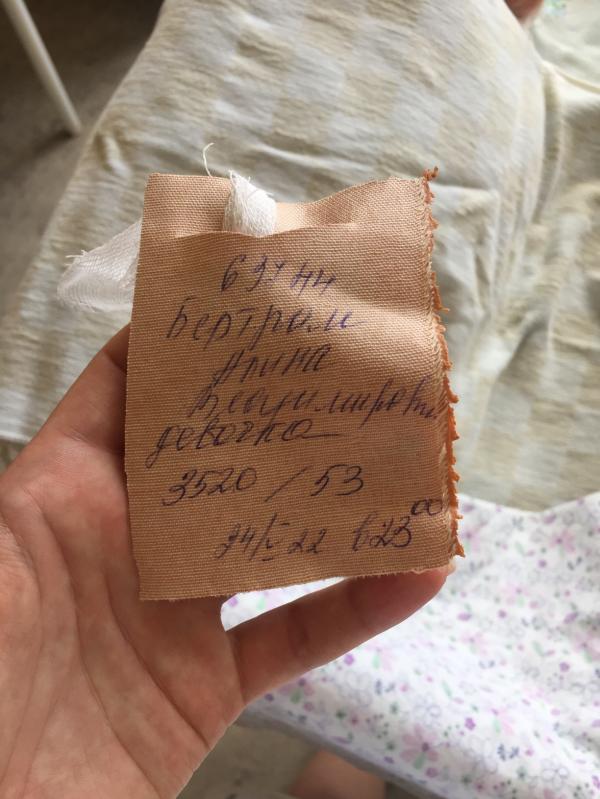 Бертрам
Алина
Владимировна
девочка
3520 / 53
24/V 22 в 23 00